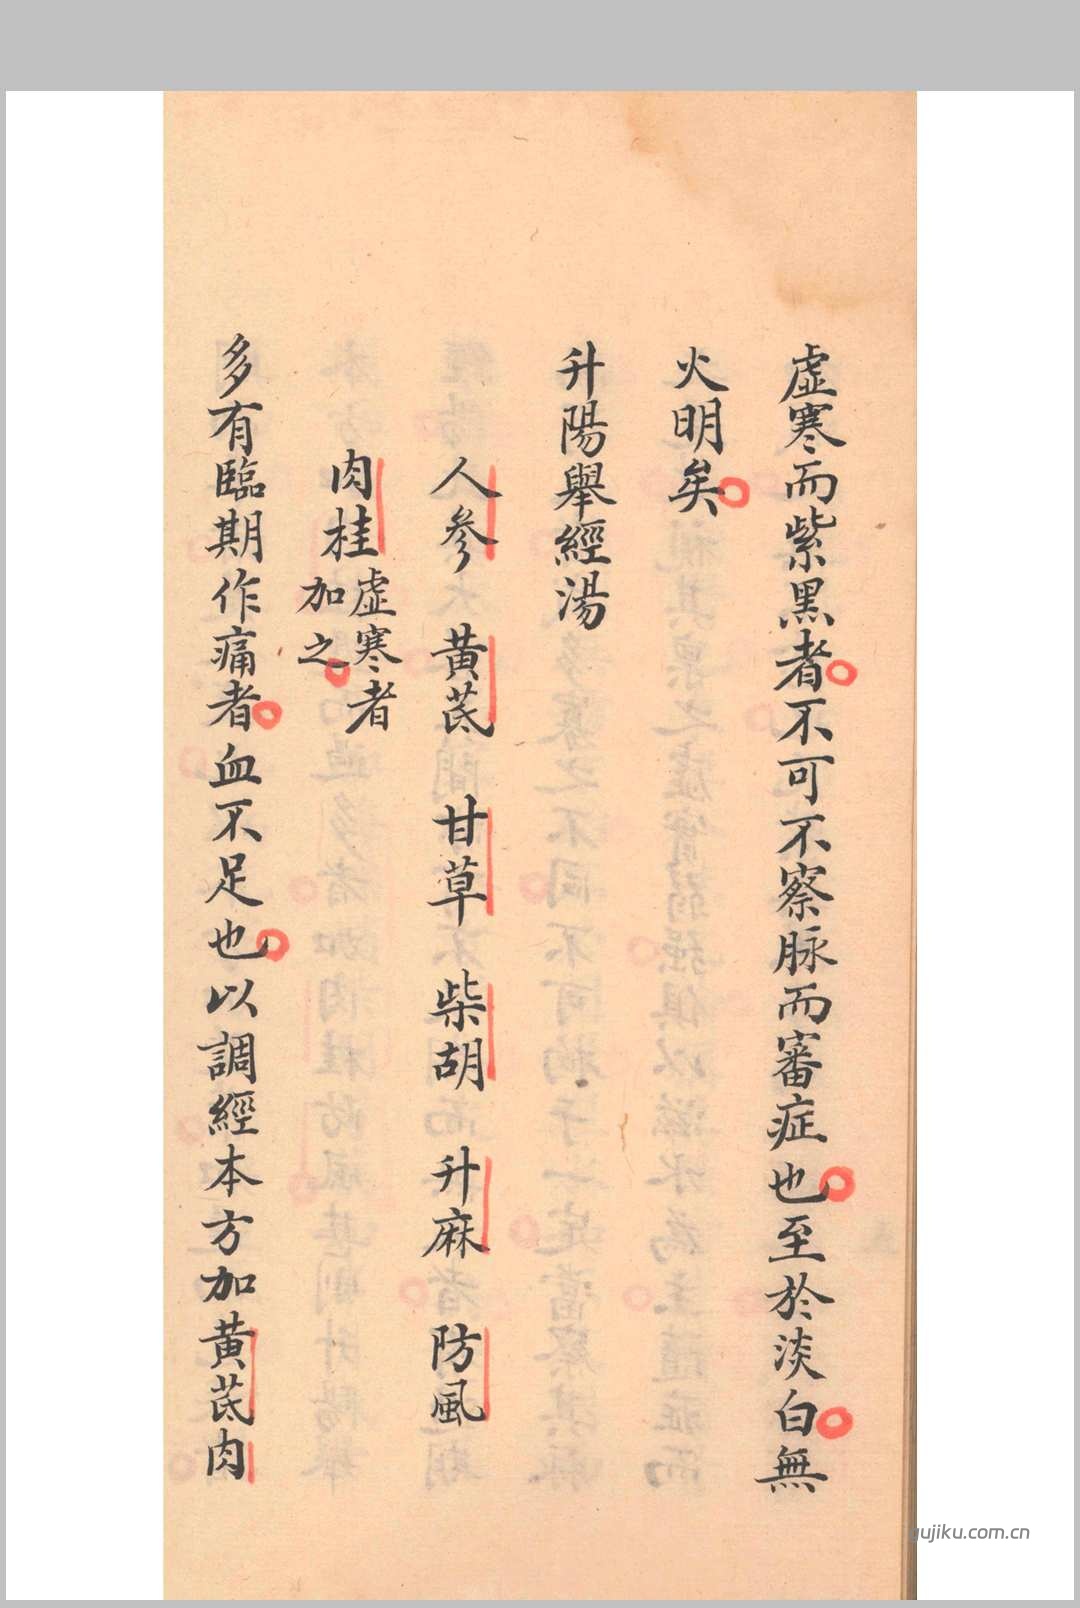 虛寒而紫黑者不可不察脉而審症也至於淡白無
火明矣
升陽舉經湯
人參 黃芪 甘草 柴胡 升麻 防風
肉桂虛寒者加之
多有臨期作痛者血不足也以調經本方加黃芪肉
gujiku.com.cn